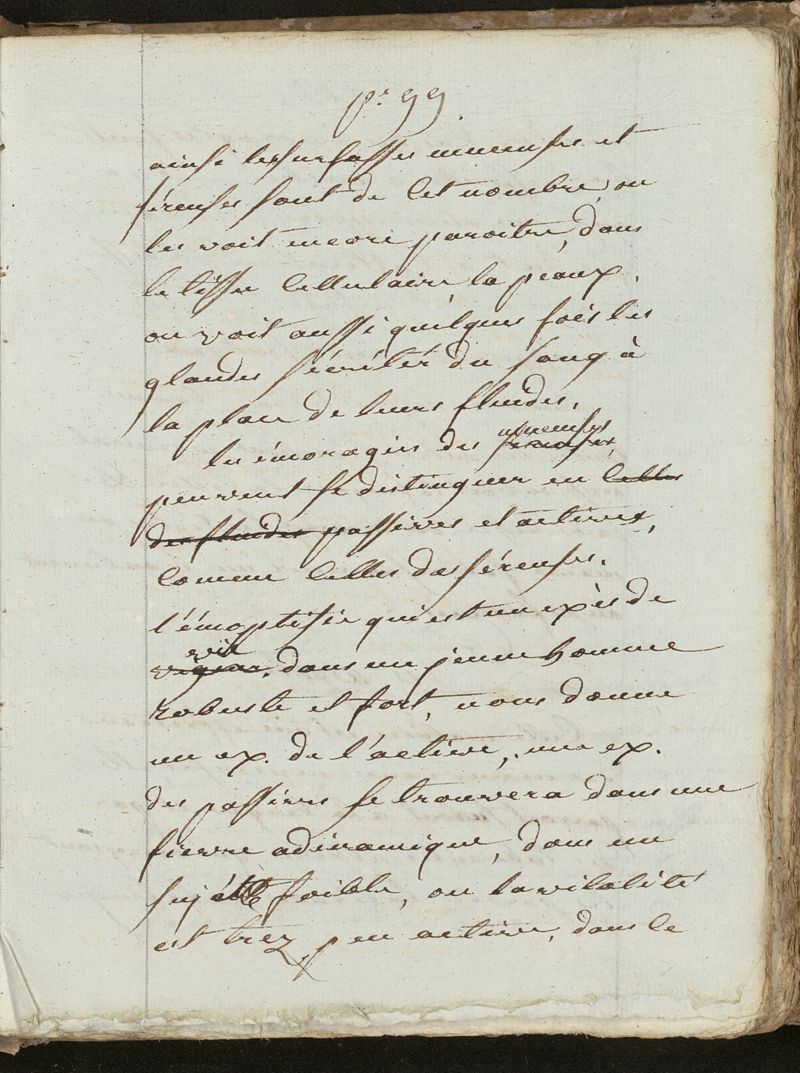 pr 99
ainsi les surfasses muceuses et
séreuses sont de cet nombre, on
les voit encore paroitre, dans
le tissu cellulaire la peaux,
on voit aussi quelques fois les
glandes sécréter du sang à
la place de leurs fluides.
les émoragies des séreuses muceuses
peuvent se distinguer en celles
des fluides passives et actives,
comme celles des séreuses.
l'émoptisie qui est un exès de
vigeur vie, dans un jeune homme
robuste et fort, nous donne
un ex. de l'active, une ex.
des passives se trouvera dans une
fievre adinamique, dans un
sujet foible, ou la vitalité
est trez peu active, dans le